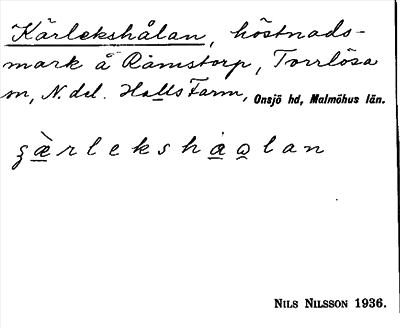 Kärlekshålan, höstnads-
mark å Råmstorp, Torrlösa
sn, N. del. Halls Farm, Onsjö hd, Malmöhus län.
ʒæ̀rlekshaꝏlan
NILS NILSSON 1936.